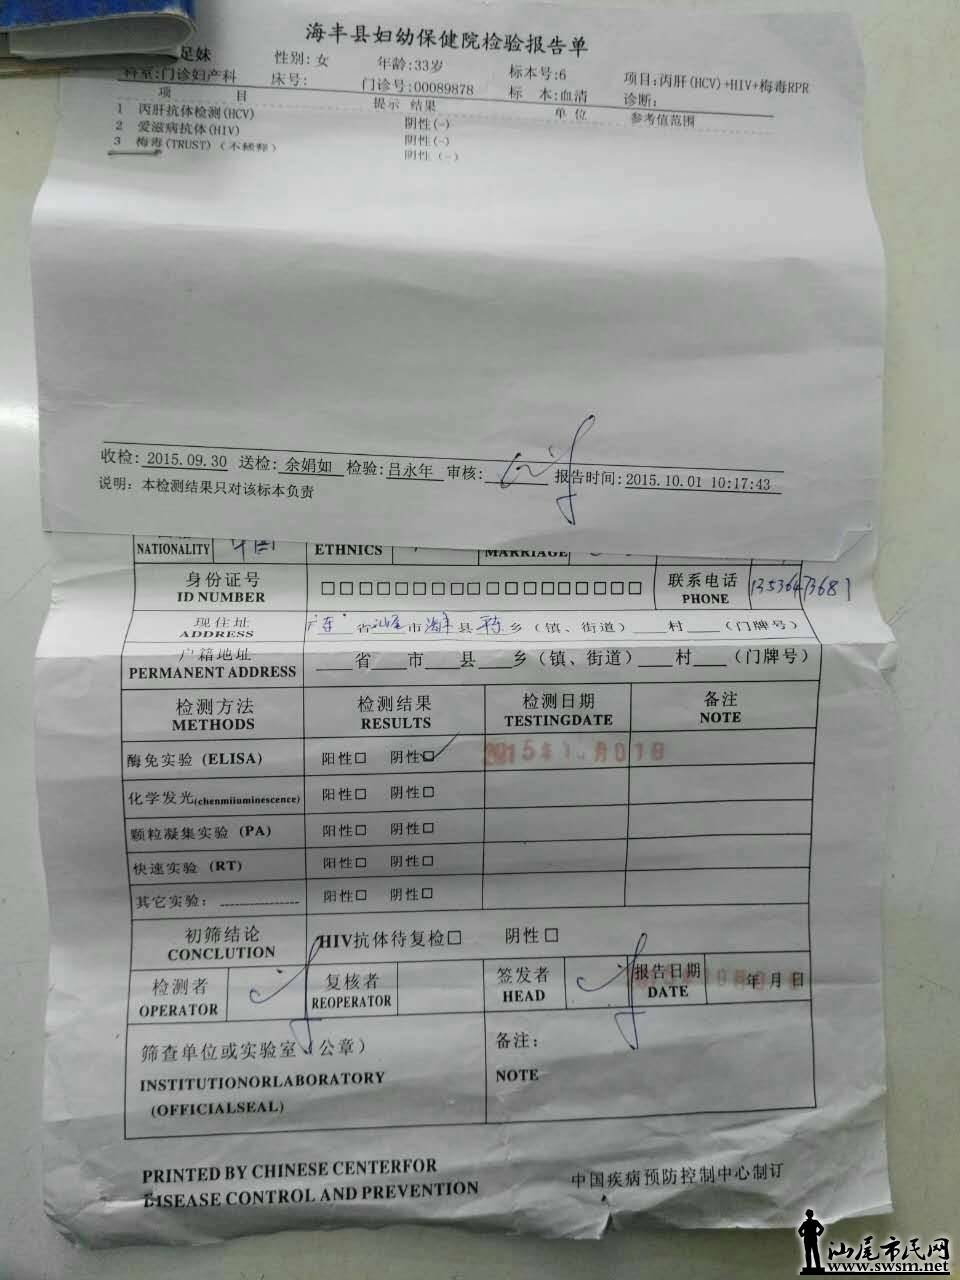 海丰县妇幼保健院检验报告单
足妹 性别: 女 年龄: 33岁 标本号: 6 项目: 丙肝(HCV)+HIV+梅毒RPR
科室: 门诊妇产科 床号: 门诊号: 00089878 标 本: 血清 诊断:
项 目 提示 结果 单 位 参考值范围
1 丙肝抗体检测(HCV) 阴性(-)
2 爱滋病抗体(HIV) 阴性(-)
3 梅毒(TRUST)(不稀释) 阴性(-)
收检: 2015.09.30 送检: 余娟如 检验: 吕永年 审核: 报告时间: 2015.10.01 10:17:43
说明: 本检测结果只对该标本负责
NATIONALITY 中国 ETHNICS MARRIAGE
身份证号 □□□□□□□□□□□□□□□□□□ 联系电话
ID NUMBER PHONE 13536473681
现住址 广东 省 汕尾 市 海丰 县 乡 (镇、街道) 村 (门牌号)
ADDRESS
户籍地址 省 市 县 乡 (镇、街道) 村 (门牌号)
PERMANENT ADDRESS
检测方法 检测结果 检测日期 备注
METHODS RESULTS TESTINGDATE NOTE
酶免实验 (ELISA) 阳性□ 阴性□✓ 2015年10月01日
化学发光(chenmiiuminescence) 阳性□ 阴性□
颗粒凝集实验 (PA) 阳性□ 阴性□
快速实验 (RT) 阳性□ 阴性□
其它实验: 阳性□ 阴性□
初筛结论 HIV抗体待复检□ 阴性□
CONCLUTION
检测者 复核者 签发者 报告日期 年 月 日
OPERATOR REOPERATOR HEAD DATE
筛查单位或实验室(公章) 备注:
INSTITUTIONORLABORATORY NOTE
(OFFICIALSEAL)
PRINTED BY CHINESE CENTERFOR 中国疾病预防控制中心制订
DISEASE CONTROL AND PREVENTION
汕尾市民网
www.swsm.net